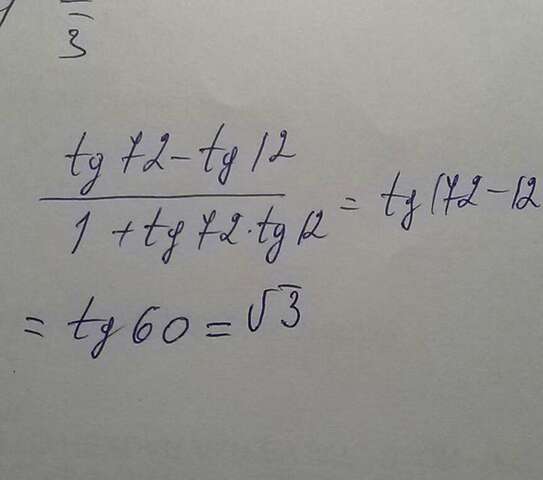 3
tg 72 - tg 12
1 + tg 72 · tg 12 = tg(72 - 12
= tg 60 = √3